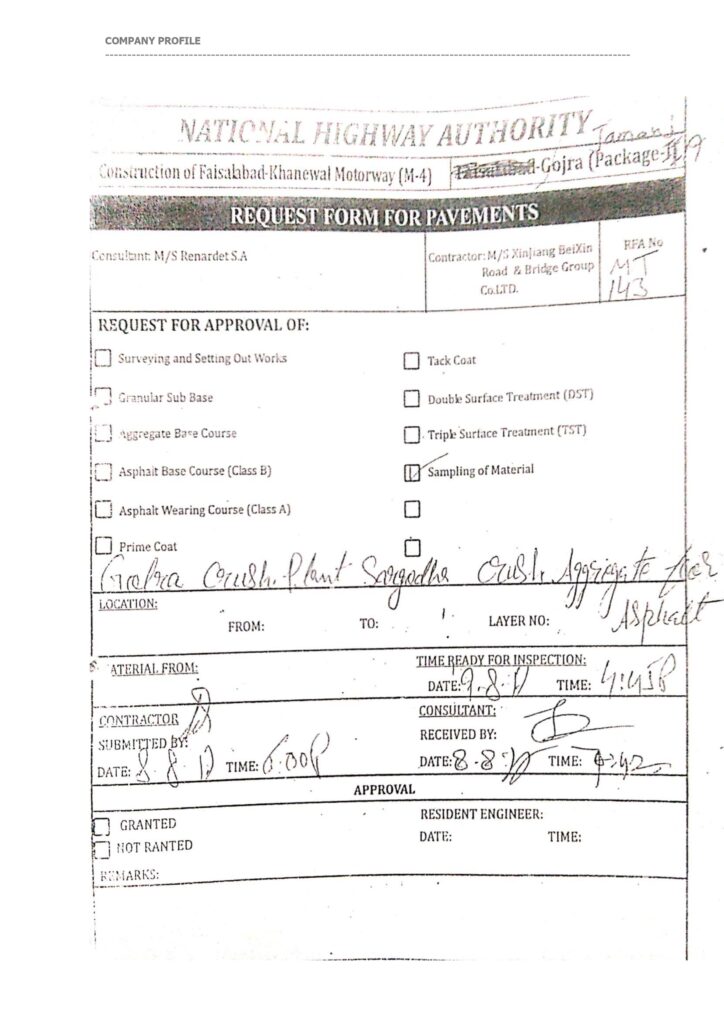 COMPANY PROFILE
NATIONAL HIGHWAY AUTHORITY
Construction of Faisalabad-Khanewal Motorway (M-4)
-Gojra (Package-
REQUEST FORM FOR PAVEMENTS
Consultant: M/S Renardet S.A
Contractor: M/S Xinjiang BeiXin
Road & Bridge Group
Co.LTD.
RFA No
MT
143
REQUEST FOR APPROVAL OF:
Surveying and Setting Out Works
Tack Coat
Granular Sub Base
Double Surface Treatment (DST)
Aggregate Base Course
Triple Surface Treatment (TST)
Asphalt Base Course (Class B)
Sampling of Material
Asphalt Wearing Course (Class A)
Prime Coat
Crush Plant Sargodha Crush Aggrigate for
Asphalt
LOCATION:
FROM: TO: LAYER NO:
MATERIAL FROM:
TIME READY FOR INSPECTION:
DATE: 9.8. TIME: 4:45P
CONTRACTOR
CONSULTANT:
SUBMITTED BY:
RECEIVED BY:
DATE: 8.8. TIME: 6.00P
DATE: 8.8. TIME:
APPROVAL
GRANTED
RESIDENT ENGINEER:
NOT RANTED
DATE: TIME:
REMARKS: